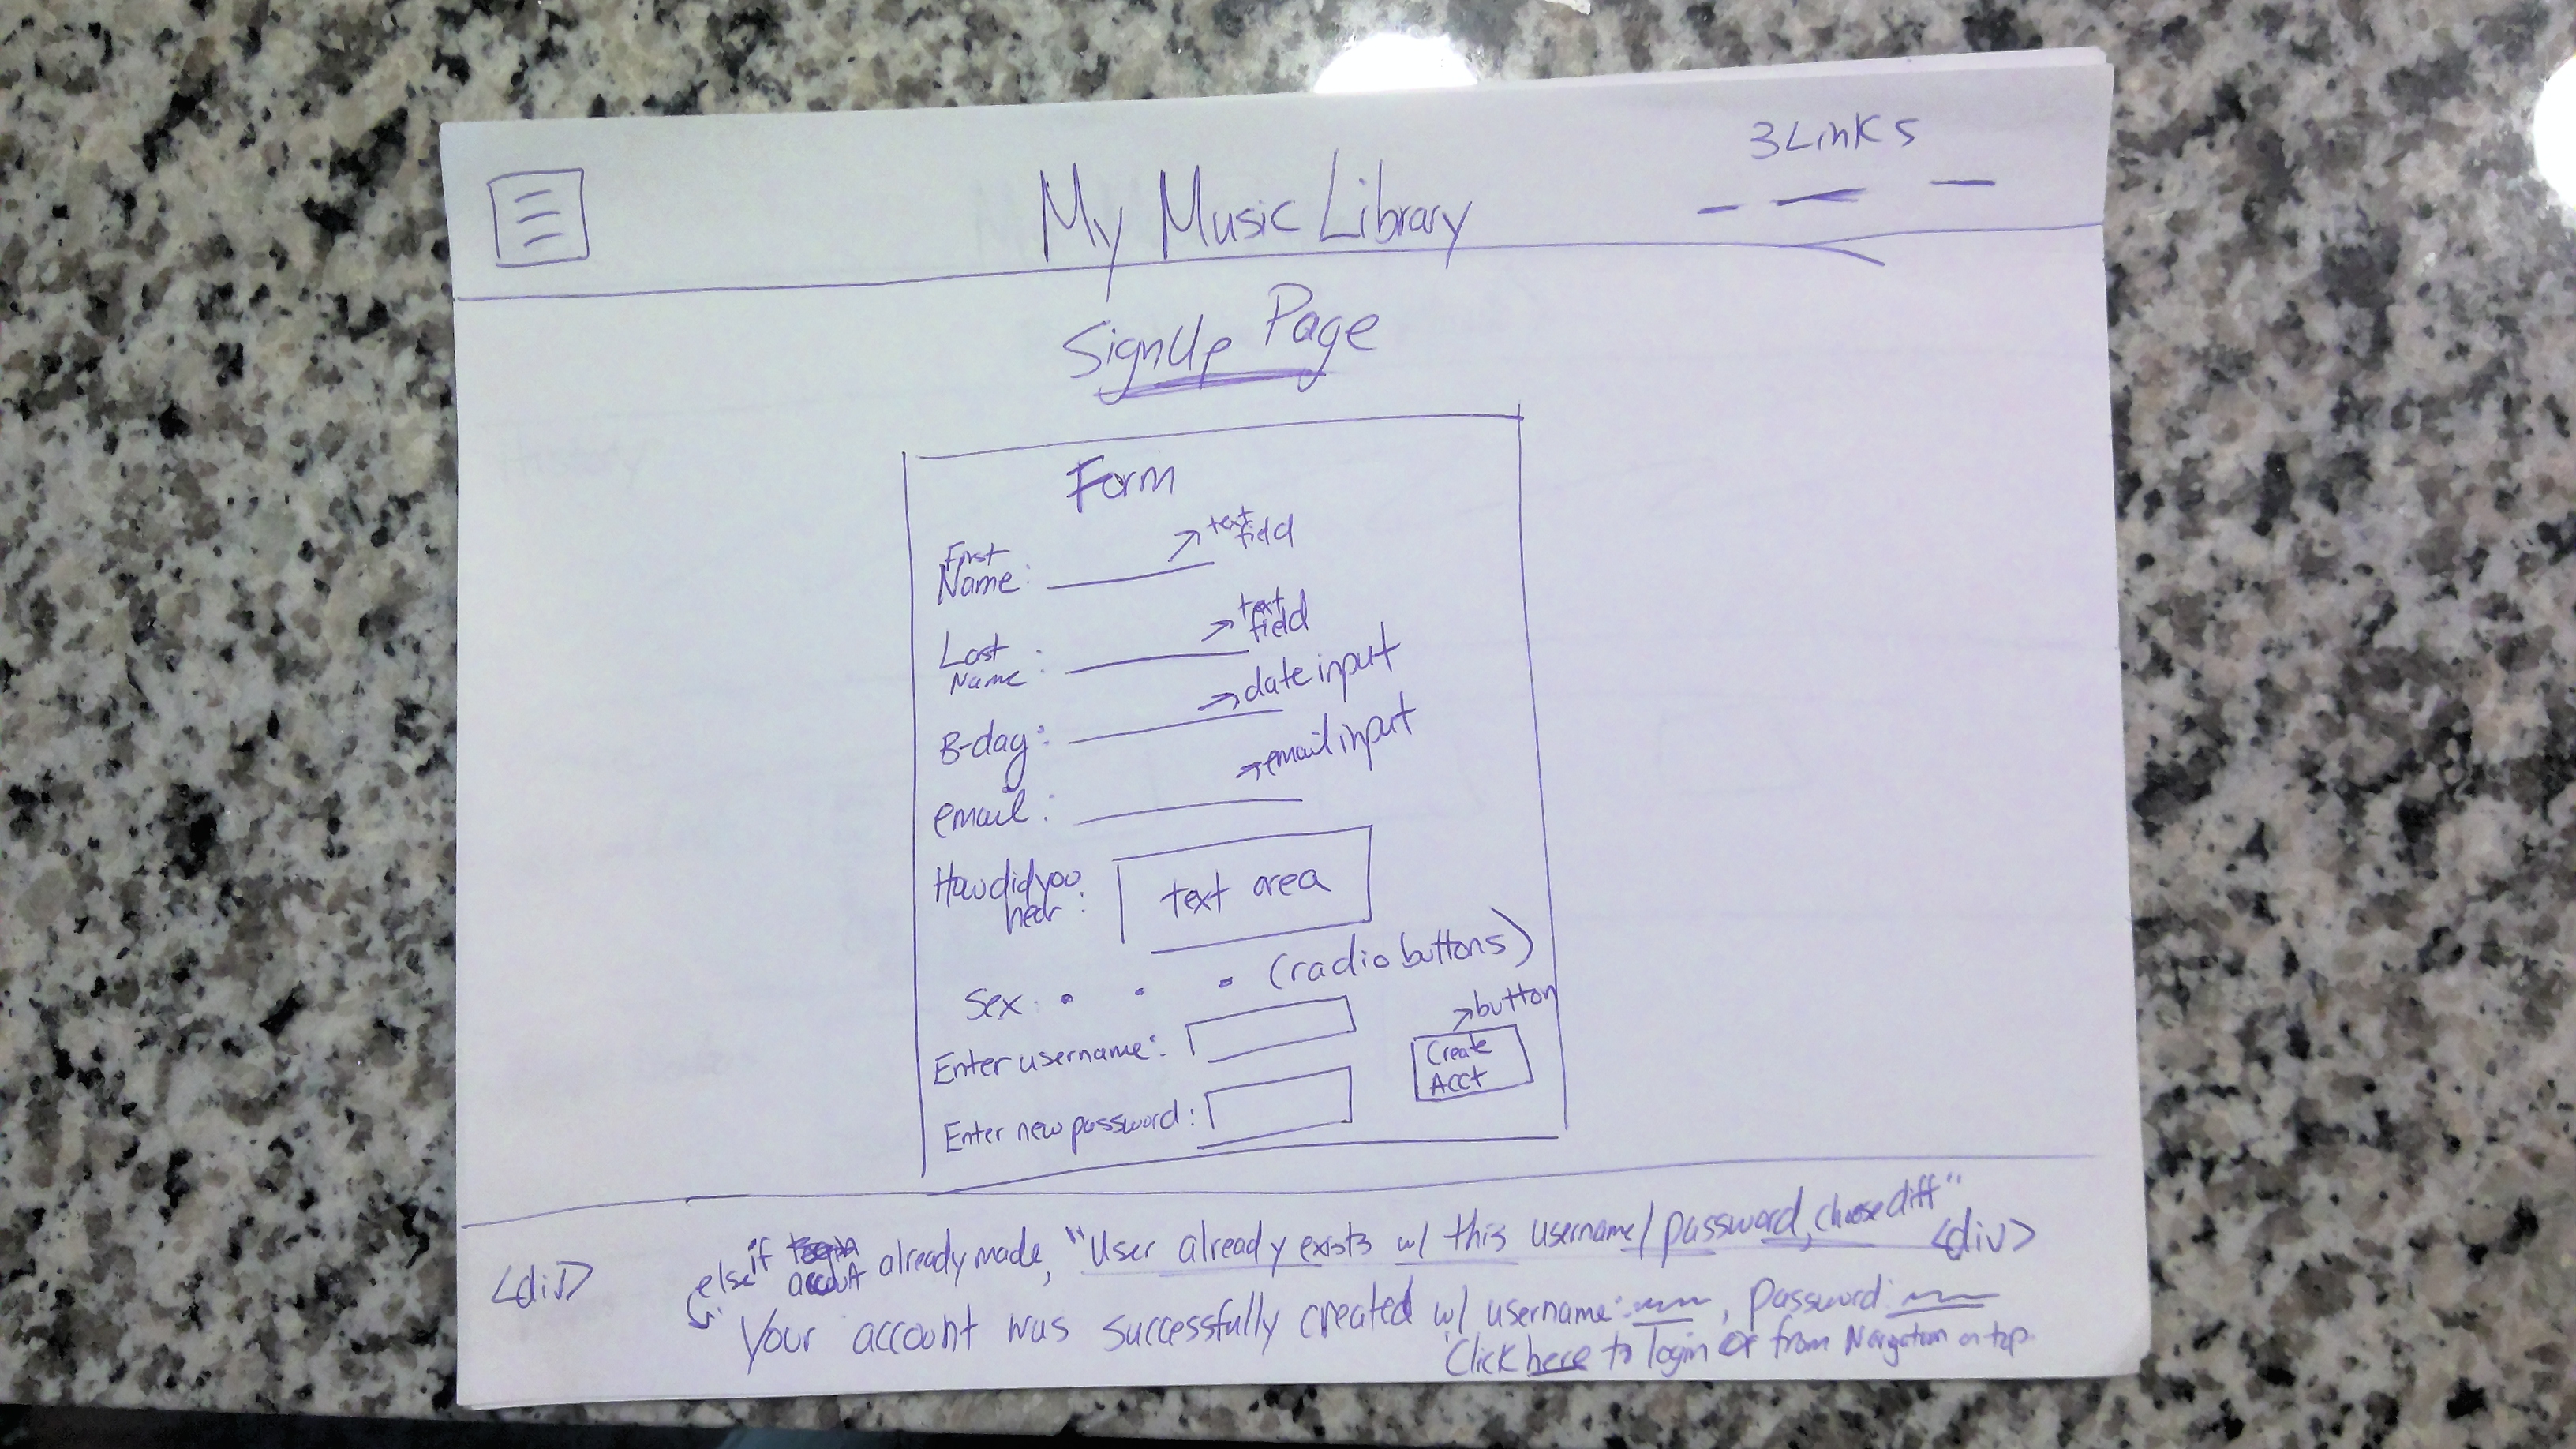 3 Links
My Music Library
SignUp Page
Form
First
Name:
text
field
Last
Name:
text
field
B-day:
date input
email:
email input
How did you
hear:
text area
Sex:
(radio buttons)
Enter username:
button
Create
Acct
Enter new password:
<div>
if account already made, "User already exists w/ this username/password, choose diff"
<div>
else
Your account was successfully created w/ username: , password:
Click here to login or from Navigation on top